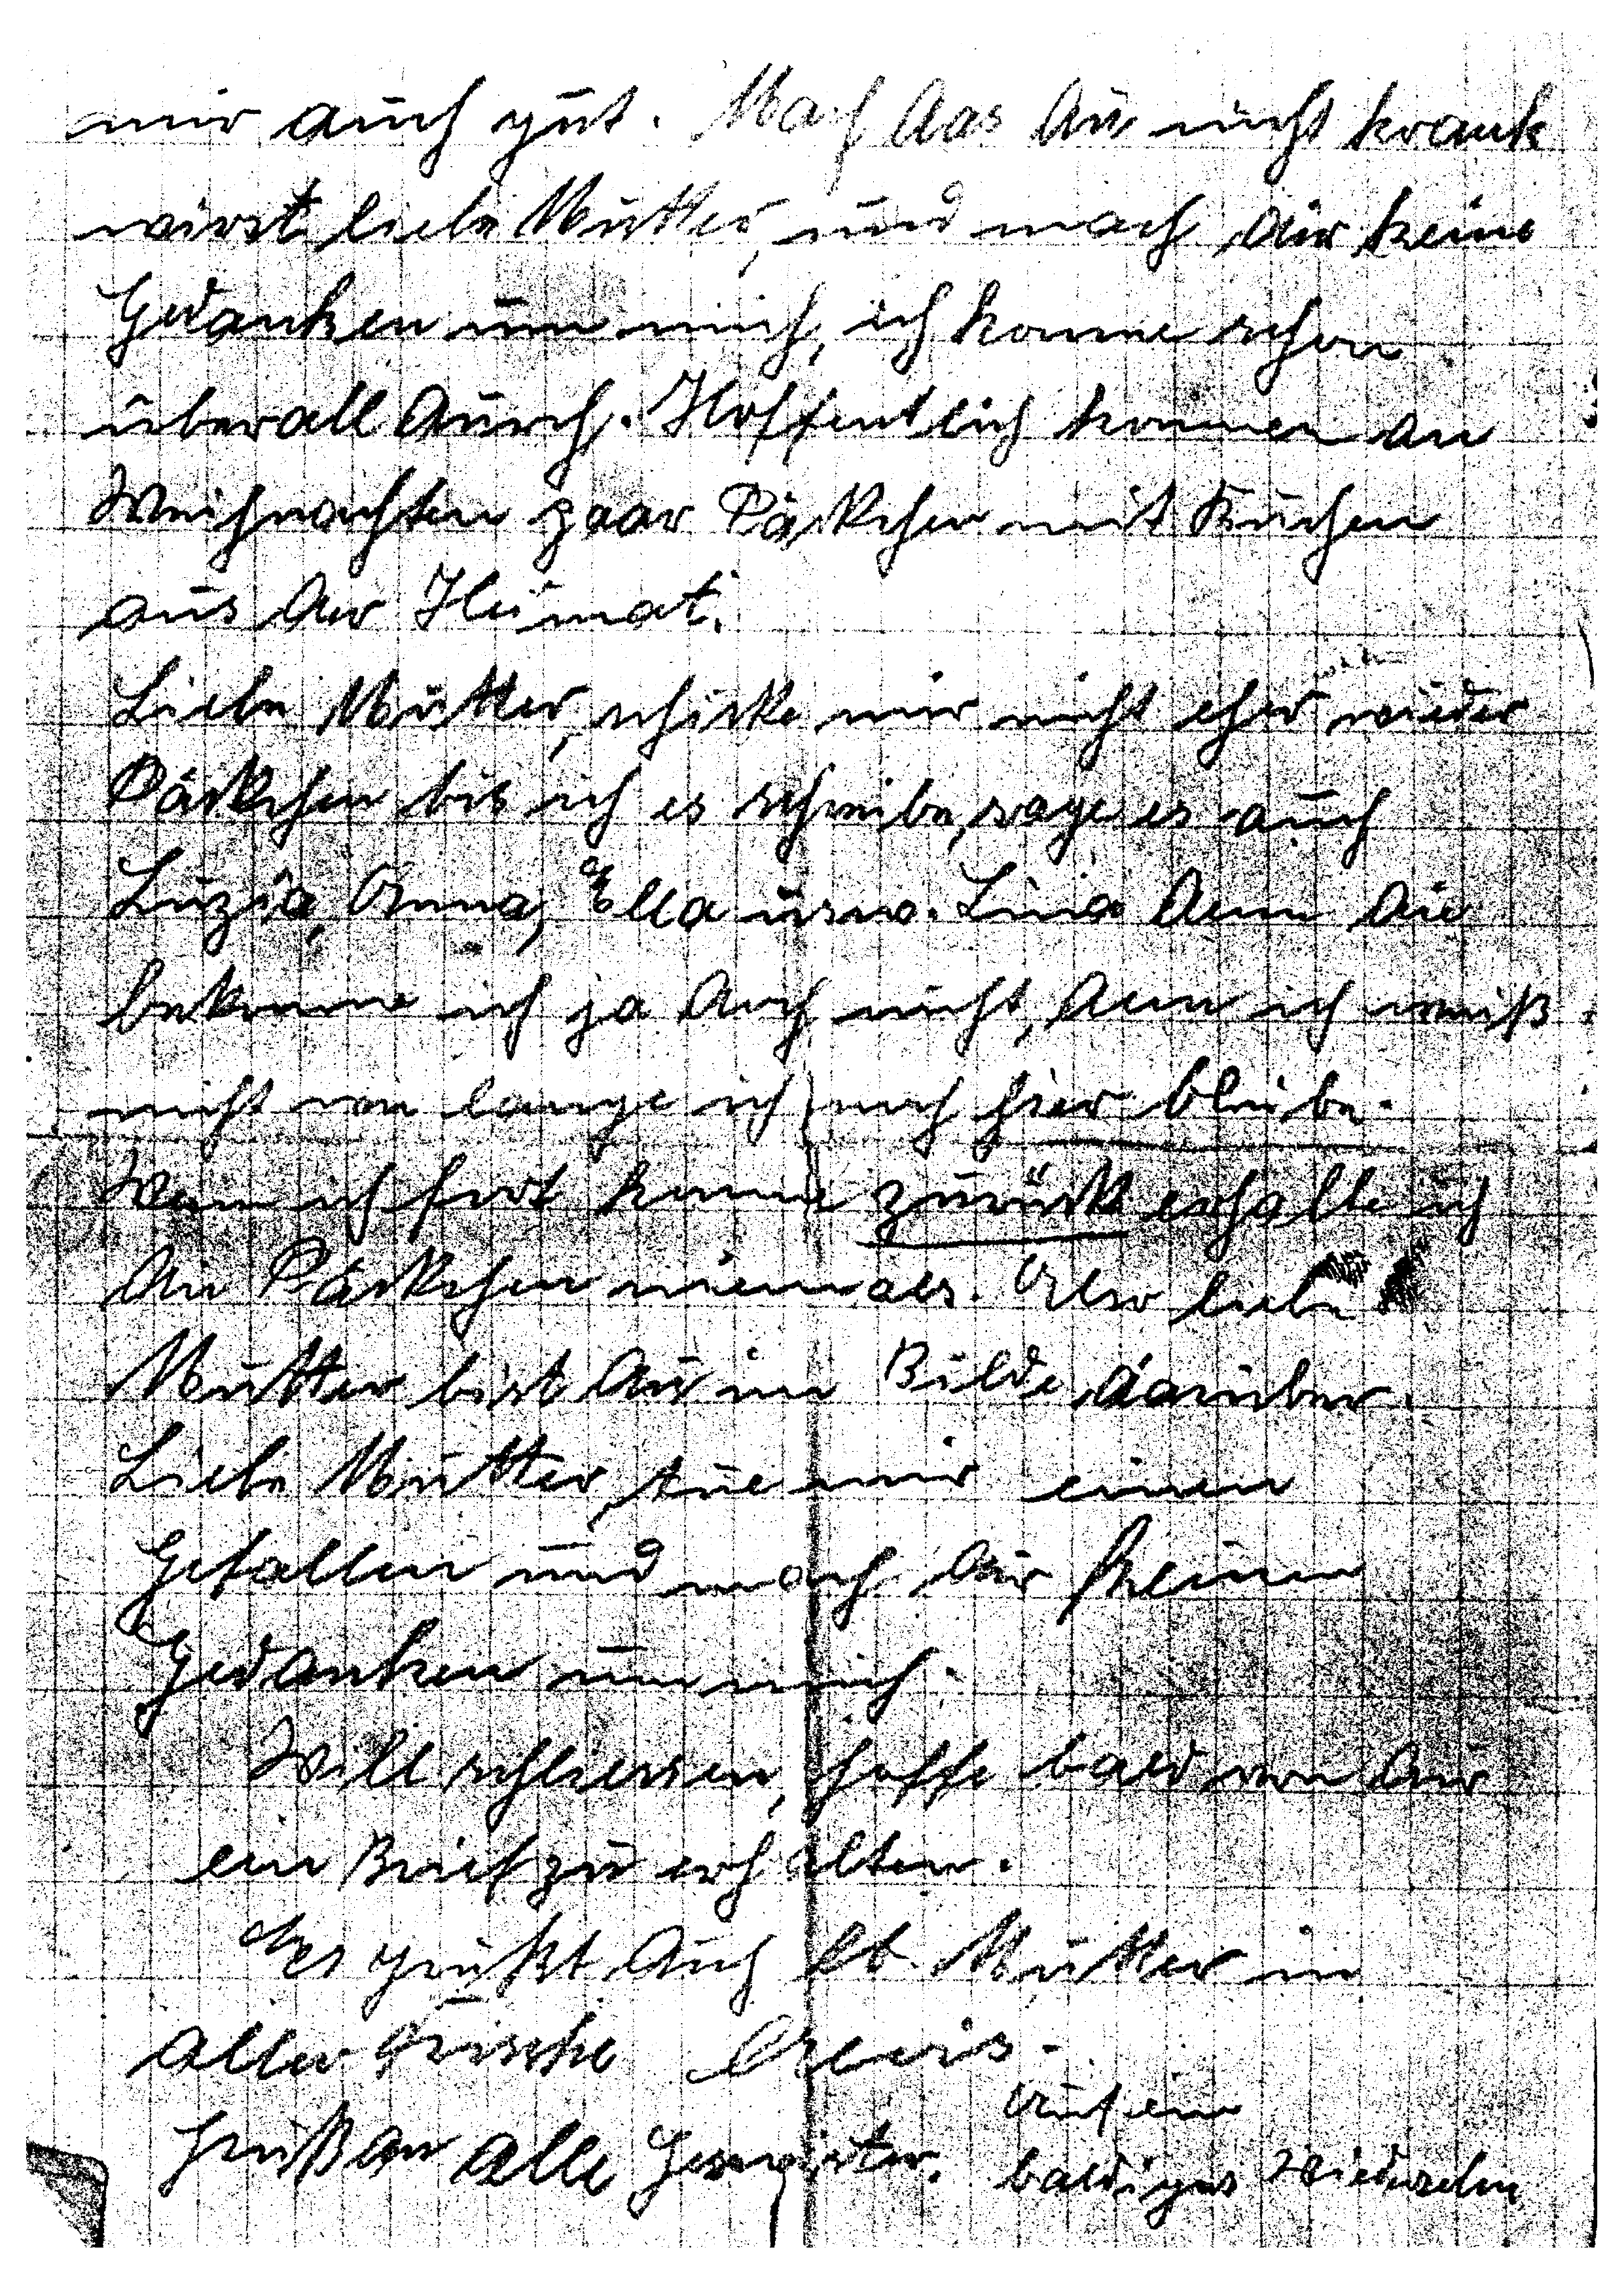 mir auch gut. Mach das du nicht krank
wirst liebe Mutter, und mach dir keine
Gedanken um mich, ich komme schon
überall durch. Hoffentlich kommen an
Weihnachten paar Päckchen mit Kuchen
aus der Heimat.
Liebe Mutter, schicke mir nicht eher wieder
Päckchen bis ich es schreibe, sage es auch
Luzia, Anna, Ella usw. Lina denn die
bekomme ich ja doch nicht, denn ich weiß
nicht wie lange ich noch hier bleibe.
Wenn ich fort komme zurück erhalte ich
die Päckchen niemals. Also liebe
Mutter bist du im Bilde darüber.
Liebe Mutter, tue mir einen
Gefallen und mach dir keinen
Gedanken um mich.
Will schliessen, hoffe bald von dir
ein Brief zu erhalten.
Es grüßt dich lb. Mutter in
aller Frische
Gruß an alle Geschwister. Auf ein
baldiges Wiedersehn